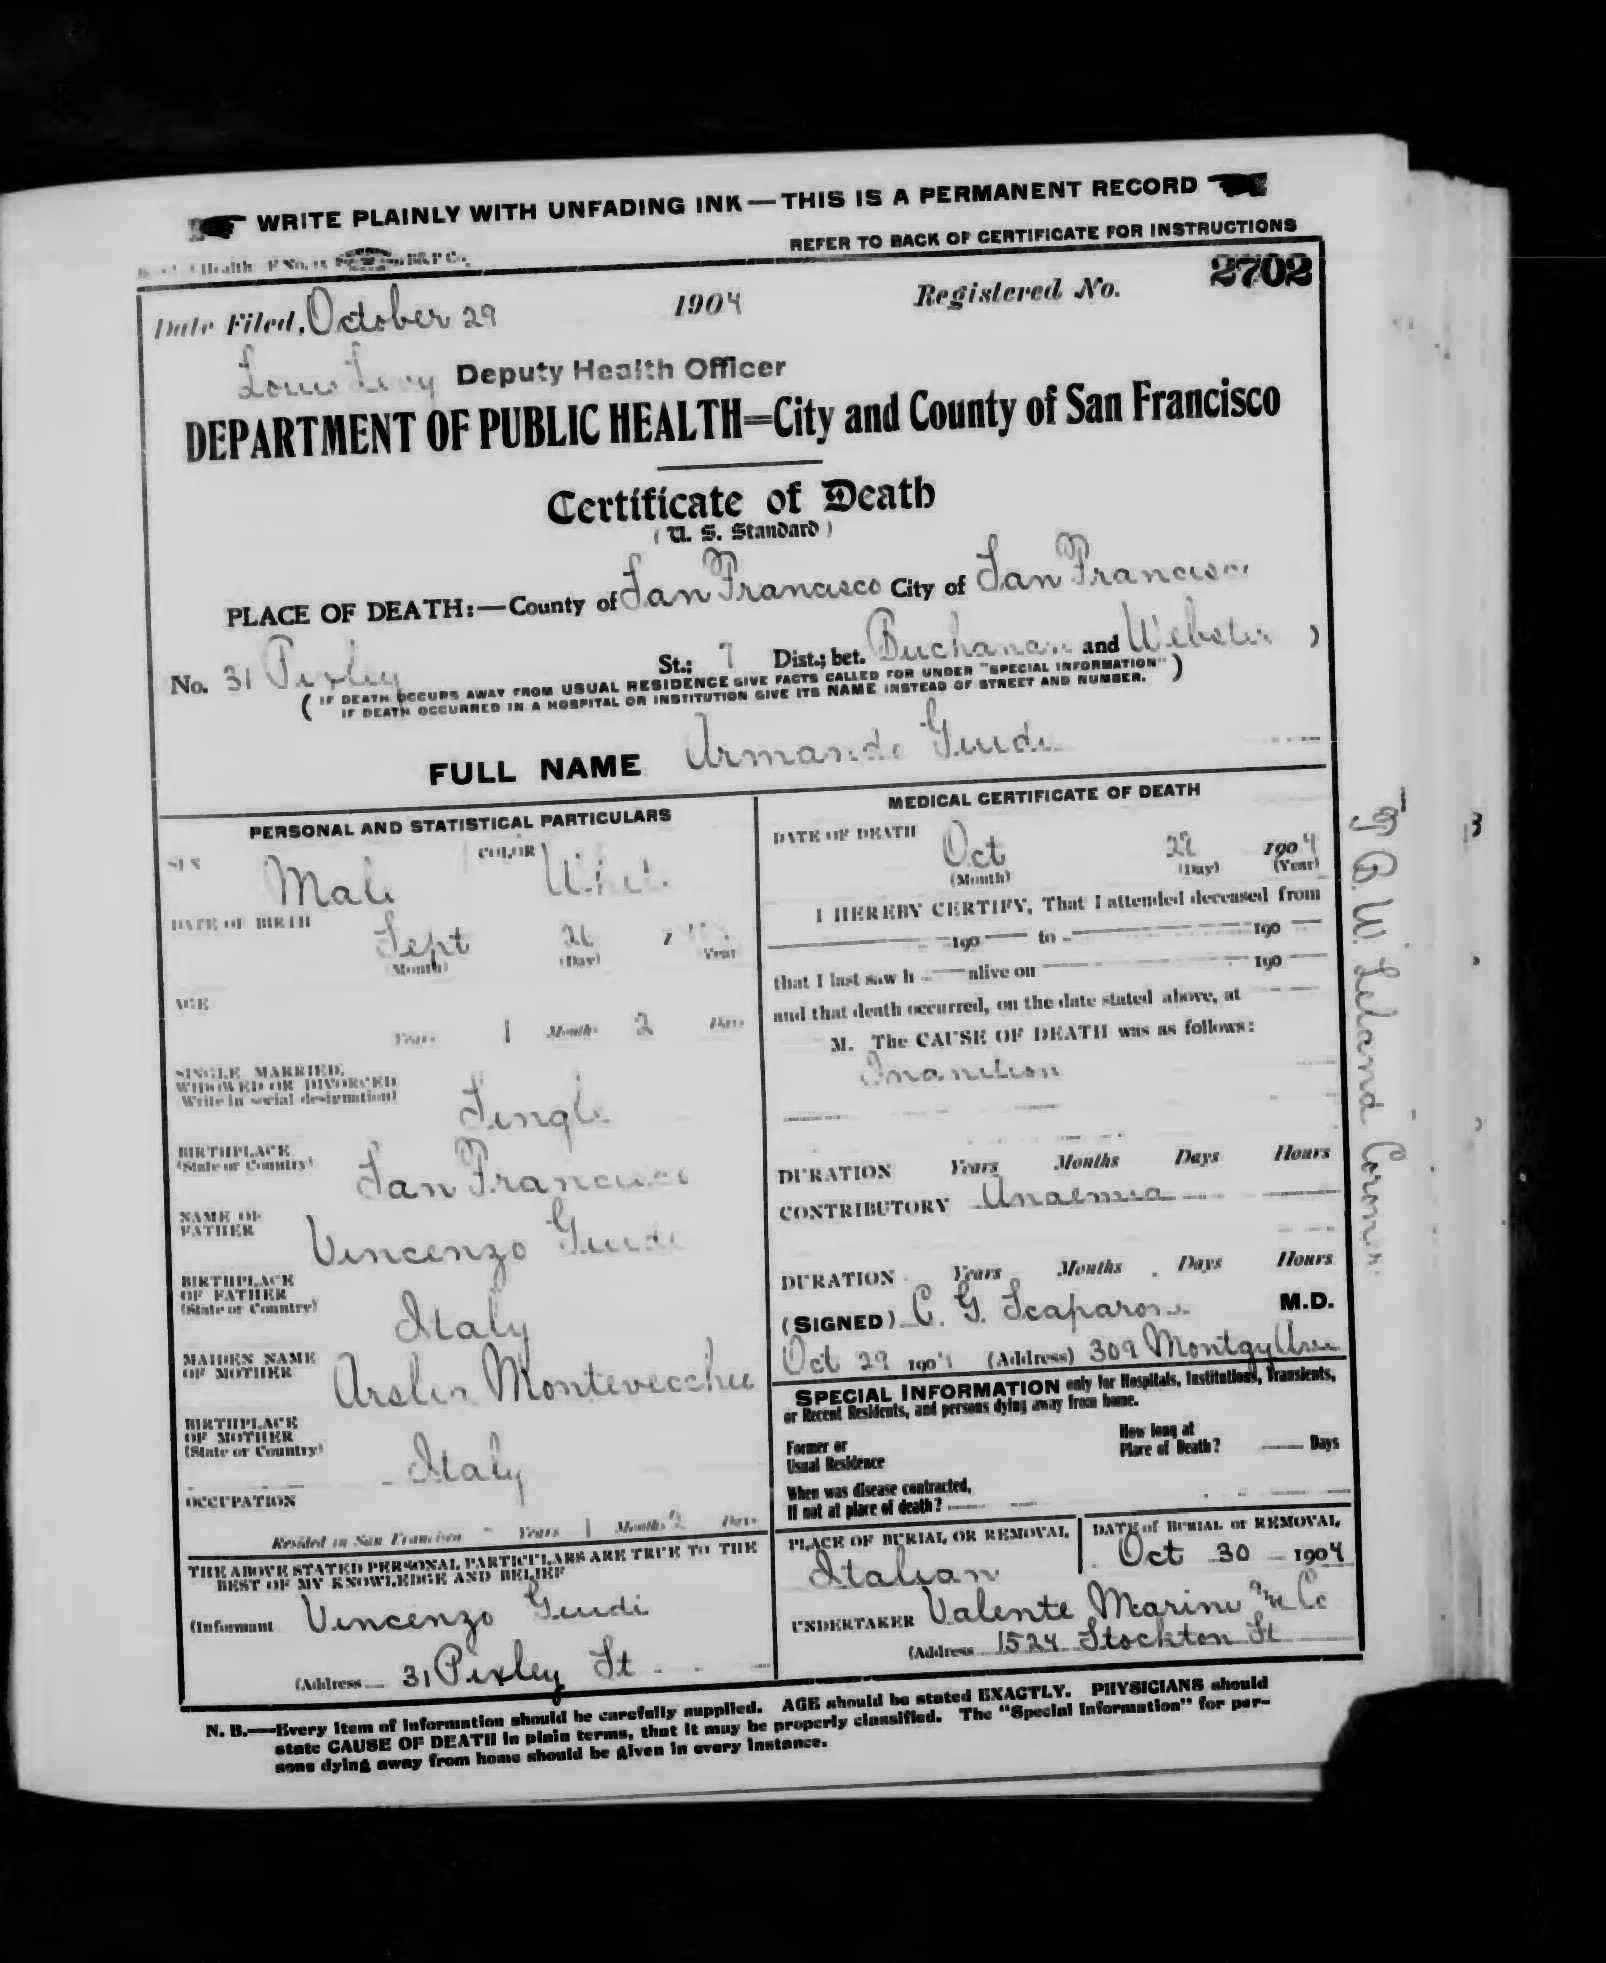 WRITE PLAINLY WITH UNFADING INK—THIS IS A PERMANENT RECORD
REFER TO BACK OF CERTIFICATE FOR INSTRUCTIONS
Health B&P Co.
Date Filed, October 29 1904 Registered No. 2702
Louis Levy Deputy Health Officer
DEPARTMENT OF PUBLIC HEALTH=City and County of San Francisco
Certificate of Death
(U. S. Standard)
PLACE OF DEATH:—County of San Francisco City of San Francisco
No. 31 Pixley St.; 7 Dist.; bet. Buchanan and Webster )
( IF DEATH OCCURS AWAY FROM USUAL RESIDENCE GIVE FACTS CALLED FOR UNDER "SPECIAL INFORMATION" )
IF DEATH OCCURRED IN A HOSPITAL OR INSTITUTION GIVE ITS NAME INSTEAD OF STREET AND NUMBER.
FULL NAME Armando Guidi
PERSONAL AND STATISTICAL PARTICULARS
SEX Male COLOR White
DATE OF BIRTH Sept 26 1
(Month) (Day) Year
AGE
Years 1 Months 2 Days
SINGLE, MARRIED,
WIDOWED OR DIVORCED
Write in social designation) Single
BIRTHPLACE
(State or Country) San Francisco
NAME OF
FATHER Vincenzo Guidi
BIRTHPLACE
OF FATHER
(State or Country) Italy
MAIDEN NAME
OF MOTHER Montevecchi
BIRTHPLACE
OF MOTHER
(State or Country) Italy
OCCUPATION
Resided in San Francisco - Years 1 Months 2 Days
THE ABOVE STATED PERSONAL PARTICULARS ARE TRUE TO THE
BEST OF MY KNOWLEDGE AND BELIEF
(Informant Vincenzo Guidi
(Address 31 Pixley St
MEDICAL CERTIFICATE OF DEATH
DATE OF DEATH Oct 28 1904
(Month) (Day) (Year)
I HEREBY CERTIFY, That I attended deceased from
190 to 190
that I last saw h alive on 190
and that death occurred, on the date stated above, at
M. The CAUSE OF DEATH was as follows:
Inanition
DURATION Years Months Days Hours
CONTRIBUTORY Anaemia
DURATION Years Months Days Hours
(SIGNED) C. G. Scaparone M.D.
Oct 29 1904 (Address) 309 Montgy Ave
SPECIAL INFORMATION only for Hospitals, Institutions, Transients,
or Recent Residents, and persons dying away from home.
Former or
Usual Residence
How long at
Place of Death? Days
When was disease contracted,
If not at place of death?
PLACE OF BURIAL OR REMOVAL
Italian
DATE of BURIAL or REMOVAL
Oct 30 1904
UNDERTAKER Valente Marini & Co
(Address 1524 Stockton St
N. B.—Every item of information should be carefully supplied. AGE should be stated EXACTLY. PHYSICIANS should
state CAUSE OF DEATH in plain terms, that it may be properly classified. The "Special Information" for per-
sons dying away from home should be given in every instance.
T. B. W. Leland Coroner.